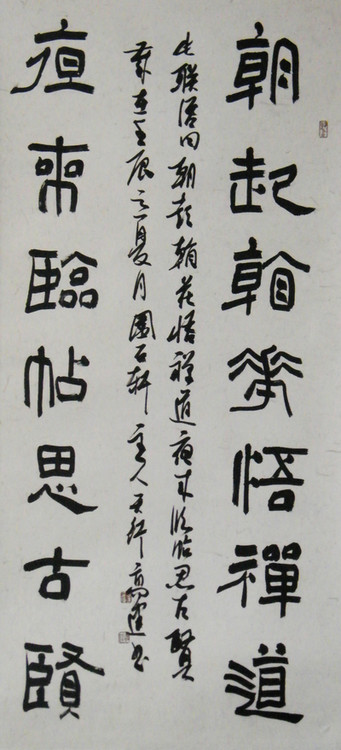 朝起翰花悟禪道
此联语曰朝起翰花悟禅道夜来临帖思古賢
岁在壬辰之夏月園石轩主人书
夜來臨帖思古賢